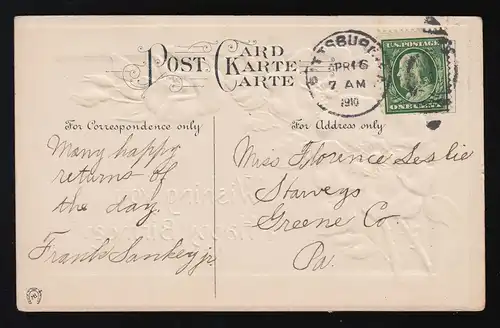 POST CARD
KARTE
CARTE
PITTSBURG
APR 16
7 AM
1910
U.S. POSTAGE
ONE CENT
For Correspondence only
For Address only
Many happy
returns of
the day.
Frank Sankey jr.
Miss Florence Leslie
Starveys
Greene Co.
Pa.